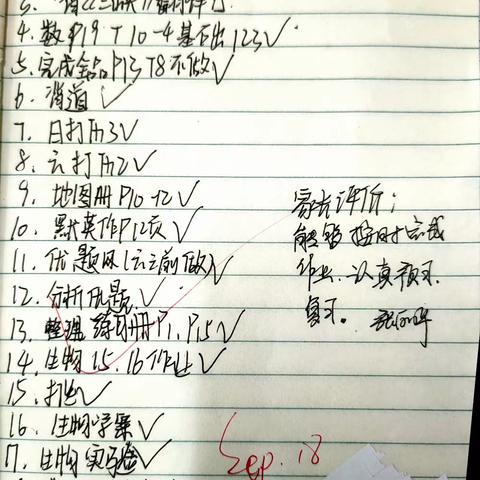 4. 数P19 T10-4基础123✓
5. 完成金品P13 T8不做✓
6. 道✓
7. 日打卡3✓
8. 云打卡2✓
9. 地图册P10-12✓
10. 默英作P12反✓
11. 优题网(云之前做)✓
12. 分析优题✓
13. 整理练习册P1, P15✓
14. 生物15.16作业✓
15. 打
16. 生物学案✓
17. 生物实验✓
家长评价:
能够按时完成
作业.认真预习.
复习。
Sep. 18